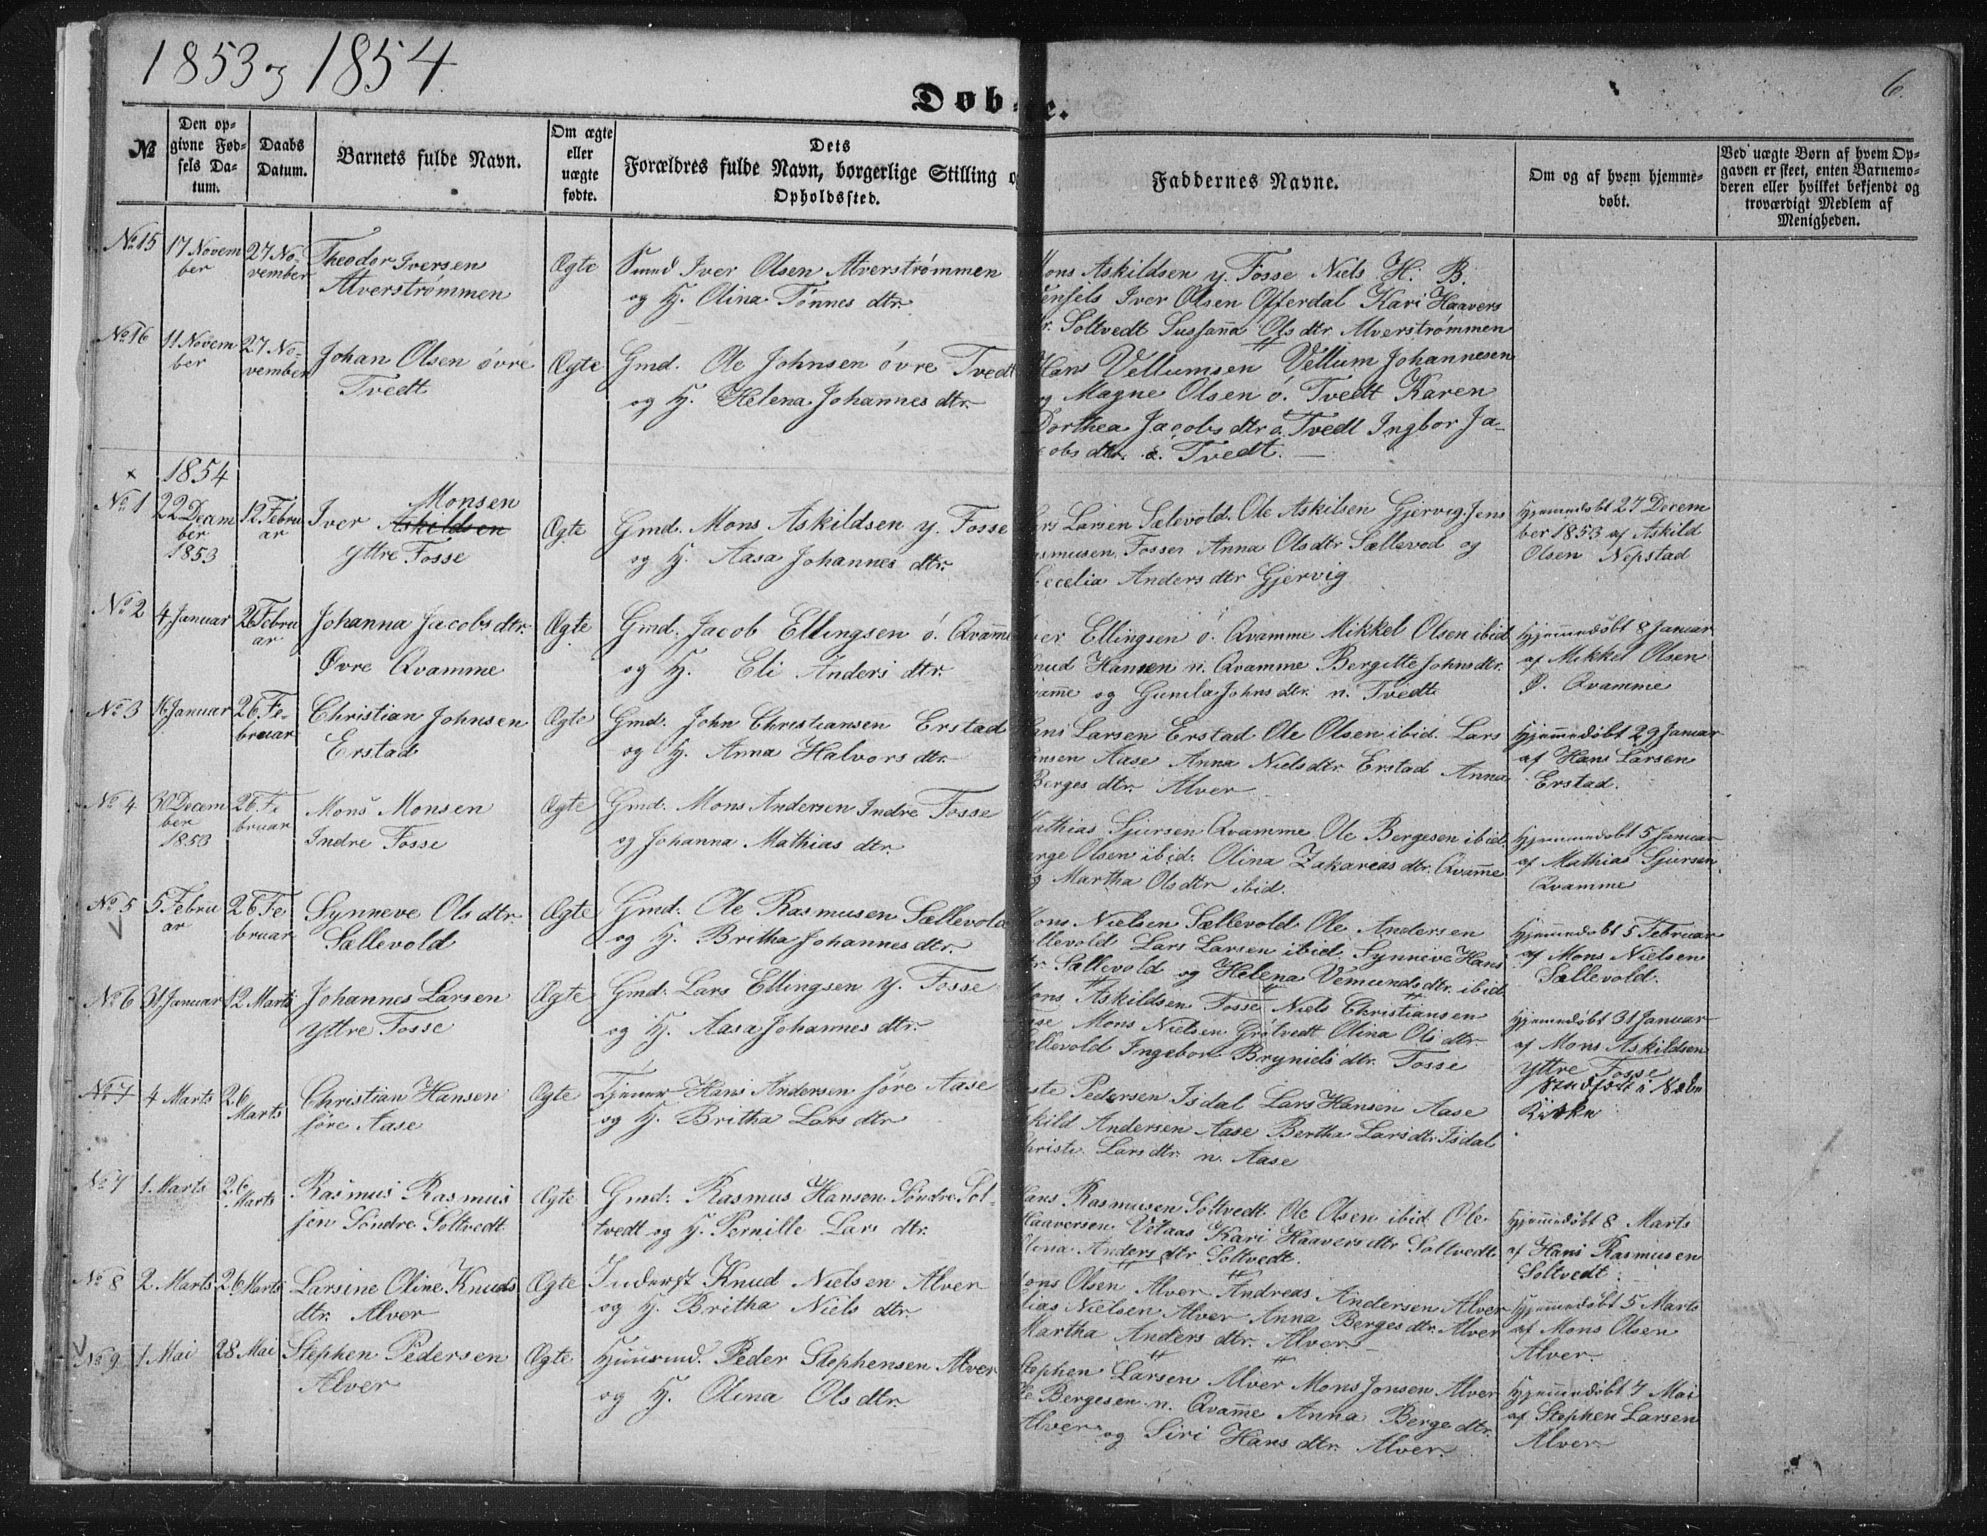 1853 og 1854
6.
Døbte.
№
Den op-
givne Fød-
sels Da-
tum.
Daabs
Datum.
Barnets fulde Navn.
Om ægte
eller
uægte
fødte.
Dets
Forældres fulde Navn, borgerlige Stilling o
Opholdssted.
Faddernes Navne.
Om og af hvem hjemme-
døbt.
Ved uægte Børn af hvem Op-
gaven er skeet, enten Barnemo-
deren eller hvilket bekjendt og
troværdigt Medlem af
Menigheden.
No 15
17 Novem
ber
27 No-
vember
Theodor Iversen
Alverstrømmen
Ægte
Iver Olsen Alverstrømmen
og H. Olina Tønnes dtr.
Mons Askildsen y. Fosse Niels H. B.
Iver Olsen Offerdal Kari Haavers
dr. Soltvedt Susanna Ols dtr Alverstrømmen
No 16
11 Novem
ber
27 No-
vember
Johan Olsen øvre
Tvedt
Ægte
Gmd. Ole Johnsen øvre Tvedt
og H. Helena Johannes dtr.
Hans Vellumsen Vellum Johannesen
og Magne Olsen ø. Tvedt Karen
Dorthea Jacobs dtr ø. Tvedt Ingbor Ja-
cobs dtr. ø. Tvedt.
× 1854
No 1
22 Decem
ber
1853
12 Febru
ar
Monsen
Iver Askeldsen
Yttre Fosse
Ægte
Gmd. Mons Askildsen y. Fosse
og H. Aasa Johannes dtr.
Lars Larsen Sælevold. Ole Askilsen Gjervig. Jens
Rasmusen Fosse Anna Olsdtr Sællevod og
Cecelia Anders dtr Gjervig
Hjemmedøbt 27 Decem
ber 1853 af Askild
Olsen Nepstad
No 2
4 Januar
26 Febru
ar
Johanna Jacobs dtr.
Øvre Qvamme
Ægte
Gmd. Jacob Ellingsen ø. Qvamme
og H. Eli Anders dtr.
Iver Ellingsen ø. Qvamme Mikkel Olsen ibid
Knud Hansen n. Qvamme Bergitte Johns dtr.
Qvamme og Gunila Johns dtr. n. Tvedt
Hjemmedøbt 8 Januar
af Mikkel Olsen
Ø. Qvamme
No 3
16 Januar
26 Fe-
bruar
Christian Johnsen
Erstad
Ægte
Gmd. John Christiansen Erstad
og H. Anna Halvors dtr.
Hans Larsen Erstad. Ole Olsen ibid. Lars
Hansen Aase Anna Niels dtr. Erstad Anna
Berges dtr. Alver
Hjemmedøbt 29 Januar
af Hans Larsen
Erstad.
No 4
30 Decem
ber
1853
26 Fe
bruar
Mons Monsen
Indre Fosse
Ægte
Gmd. Mons Andersen Indre Fosse
og Johanna Mathias dtr.
Mathias Sjursen Qvamme Ole Bergesen ibid.
Berge Olsen ibid. Olina Zakareas dtr. Qvamme
og Martha Ols dtr ibid.
Hjemmedøbt 5 Januar
af Mathias Sjursen
Qvamme
No 5
5 Febru
ar
26 Fe
bruar
Synneve Ols dtr
Sællevold
Ægte
Gmd. Ole Rasmusen Sællevold
og H. Britha Johannes dtr.
Mons Nielsen Sællevold. Ole Andersen
Sællevold Lars Larsen ibid. Synneve Hans
dtr. Sællevold og Helena Vemunds dtr. ibid
Hjemmedøbt 5 Februar
af Mons Nielsen
Sællevold.
No 6
31 Januar
12 Marts
Johannes Larsen
Yttre Fosse
Ægte
Gmd. Lars Ellingsen y. Fosse
og H. Aasa Johannes dtr.
Mons Askildsen Fosse Niels Christiansen
Fosse Mons Nielsen Grøtvedt. Olina Ols dtr.
Sællevold Ingebor Brynields dtr. Fosse
Hjemmedøbt 31 Januar
af Mons Askildsen
Yttre Fosse
No 7
4 Marts
26
Marts
Christian Hansen
søre Aase
Ægte
Tjener Hans Andersen søre Aase
og H. Britha Lars dtr
Pedersen Isdal Lars Hansen Aase
Askild Andersen Aase Bertha Lars dtr Isdal
Christi Lars dtr. n. Aase
Kirke
No 7
1. Marts
26
Marts
Rasmus Rasmus
sen Søndre Soltvedt
Ægte
Gmd. Rasmus Hansen Søndre Sol-
tvedt og H. Pernille Lars dtr.
Hans Rasmusen Soltvedt. Ole Olsen ibid. Ole
Haaversen Vetaas Kari Haavers dtr Soltvedt
Olina Anders dtr Soltvedt.
Hjemmedøbt 8 Marts
af Hans Rasmusen
Soltvedt
No 8
2. Marts
26 Marts
Larsine Oline Knuds
dtr. Alver
Ægte
Inderst Knud Nielsen Alver
og H. Britha Niels dtr.
Mons Olsen Alver Andreas Andersen Alver
Elias Nielsen Alver Anna Berges dtr. Alver
Martha Anders dtr. Alver
Hjemmedøbt 5 Marts
af Mons Olsen
Alver.
No 9
1 Mai
28 Mai
Stephen Pedersen
Alver
Ægte
Huusmd. Peder Stephensen Alver
og H. Olina Ols dtr
Stephen Larsen Alver Mons Jonsen Alver
Ole Bergesen n. Qvamme Anna Berge dtr.
Alver og Siri Hans dtr. Alver.
Hjemmedøbt 7 Mai
af Stephen Larsen
Alver